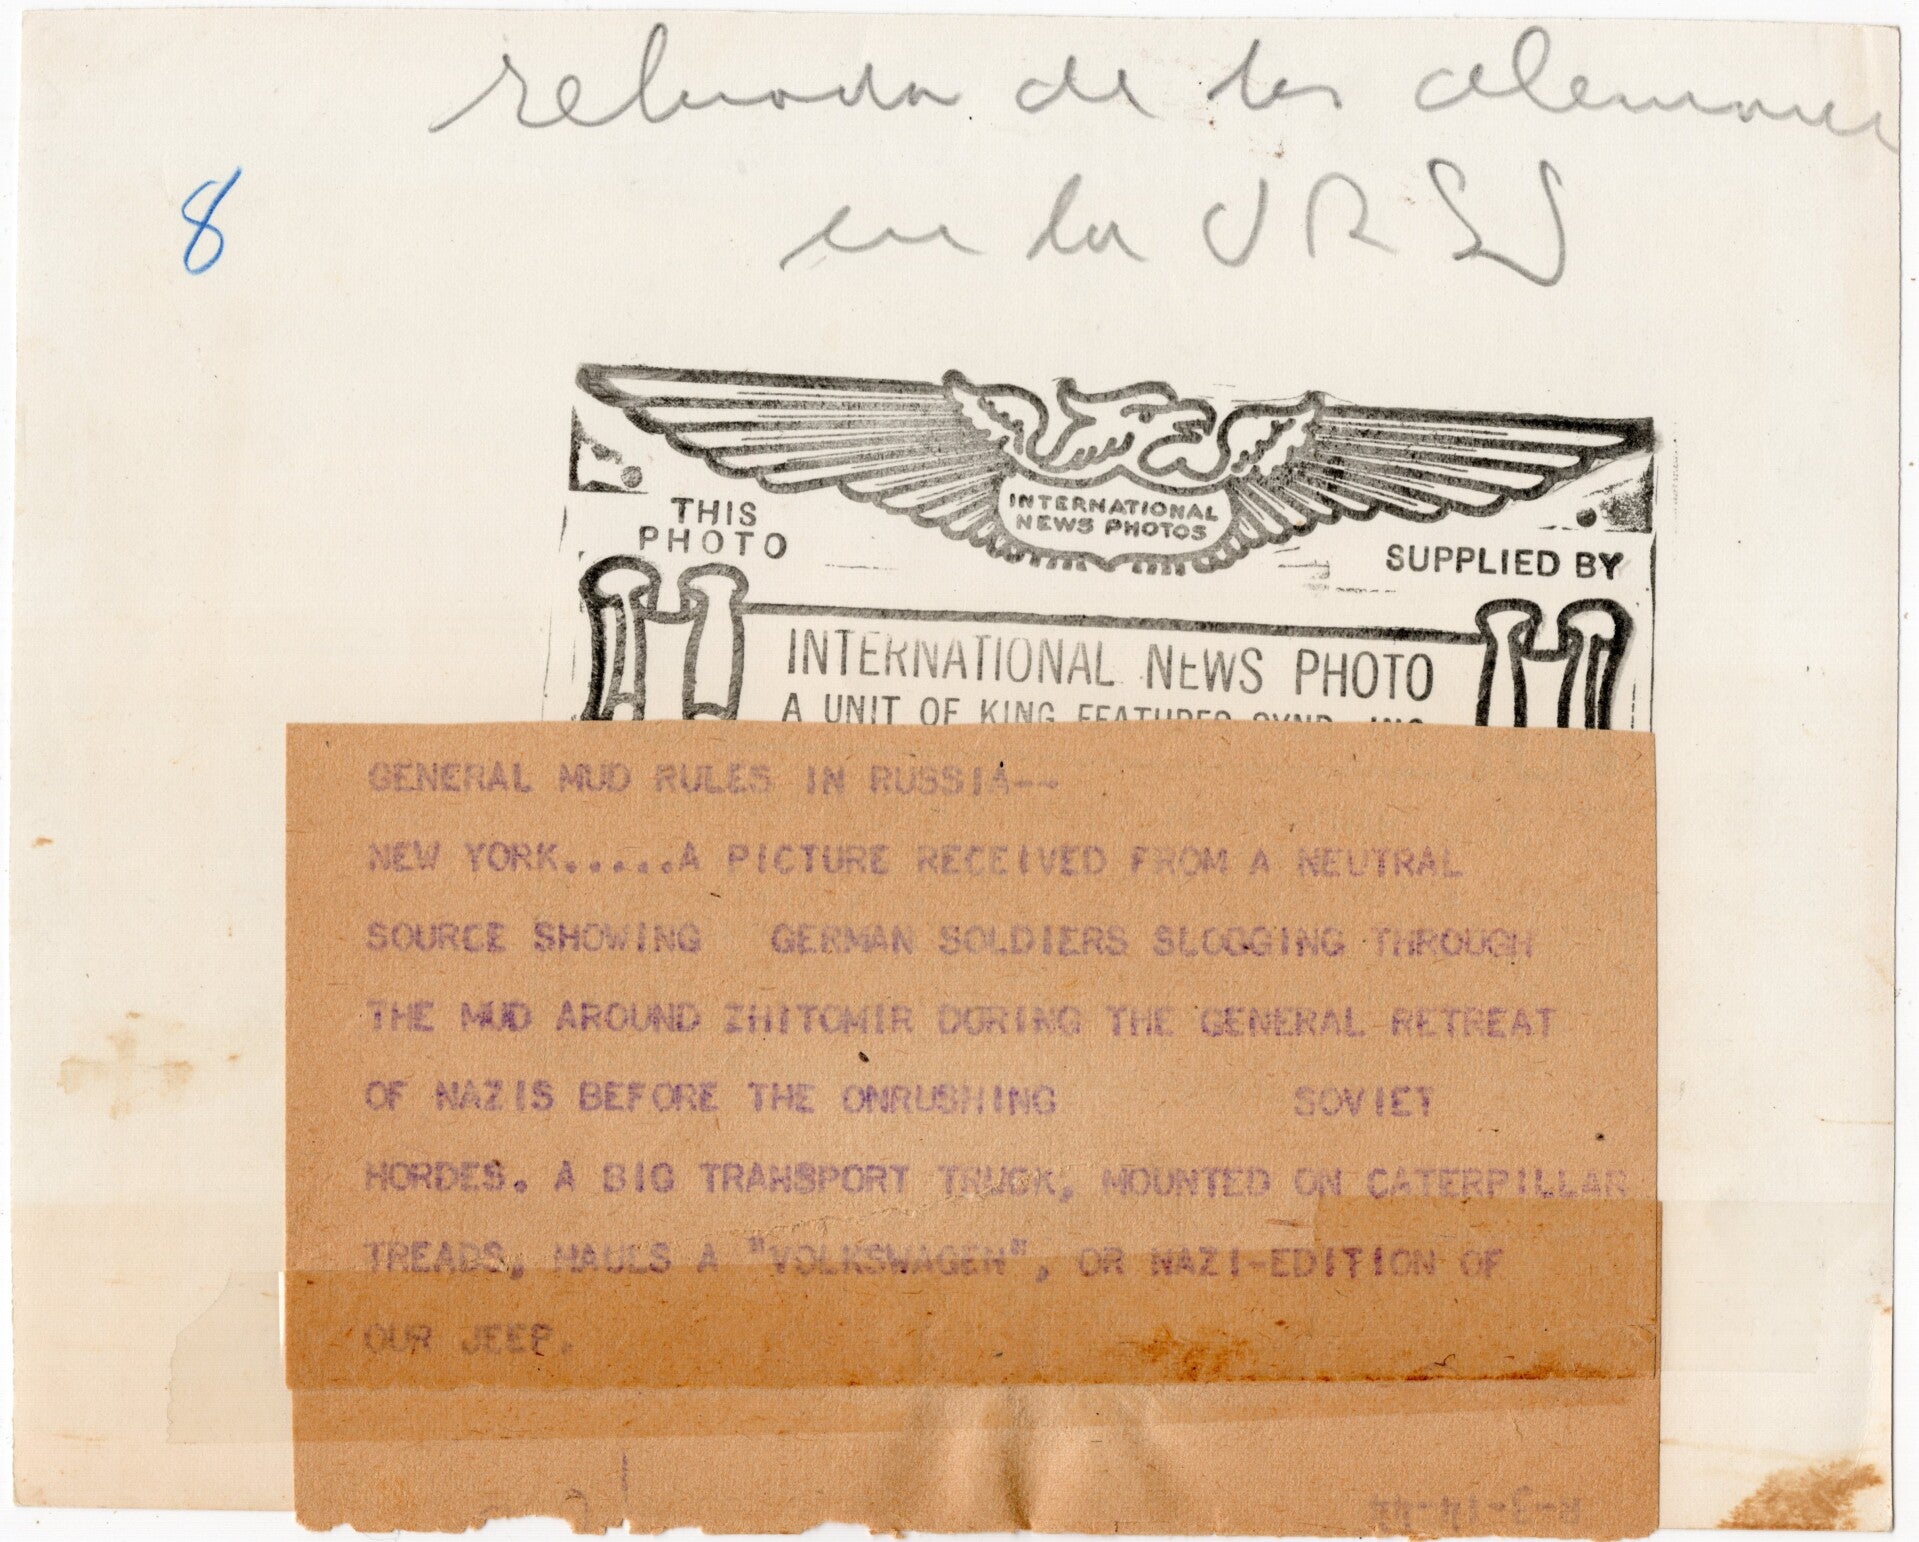 de los alemanes
en la URSS
8
INTERNATIONAL
NEWS PHOTOS
THIS
PHOTO
SUPPLIED BY
INTERNATIONAL NEWS PHOTO
A UNIT OF KING FEATURES SYND. INC
GENERAL MUD RULES IN RUSSIA--
NEW YORK.....A PICTURE RECEIVED FROM A NEUTRAL
SOURCE SHOWING GERMAN SOLDIERS SLOGGING THROUGH
THE MUD AROUND ZHITOMIR DURING THE GENERAL RETREAT
OF NAZIS BEFORE THE ONRUSHING SOVIET
HORDES. A BIG TRANSPORT TRUCK, MOUNTED ON CATERPILLAR
TREADS, HAULS A "VOLKSWAGEN", OR NAZI-EDITION OF
OUR JEEP.